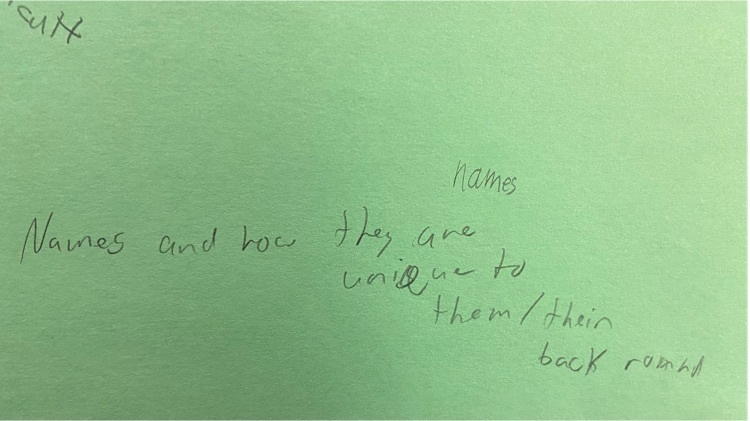 names
Names and how they are
unique to
them/their
back round